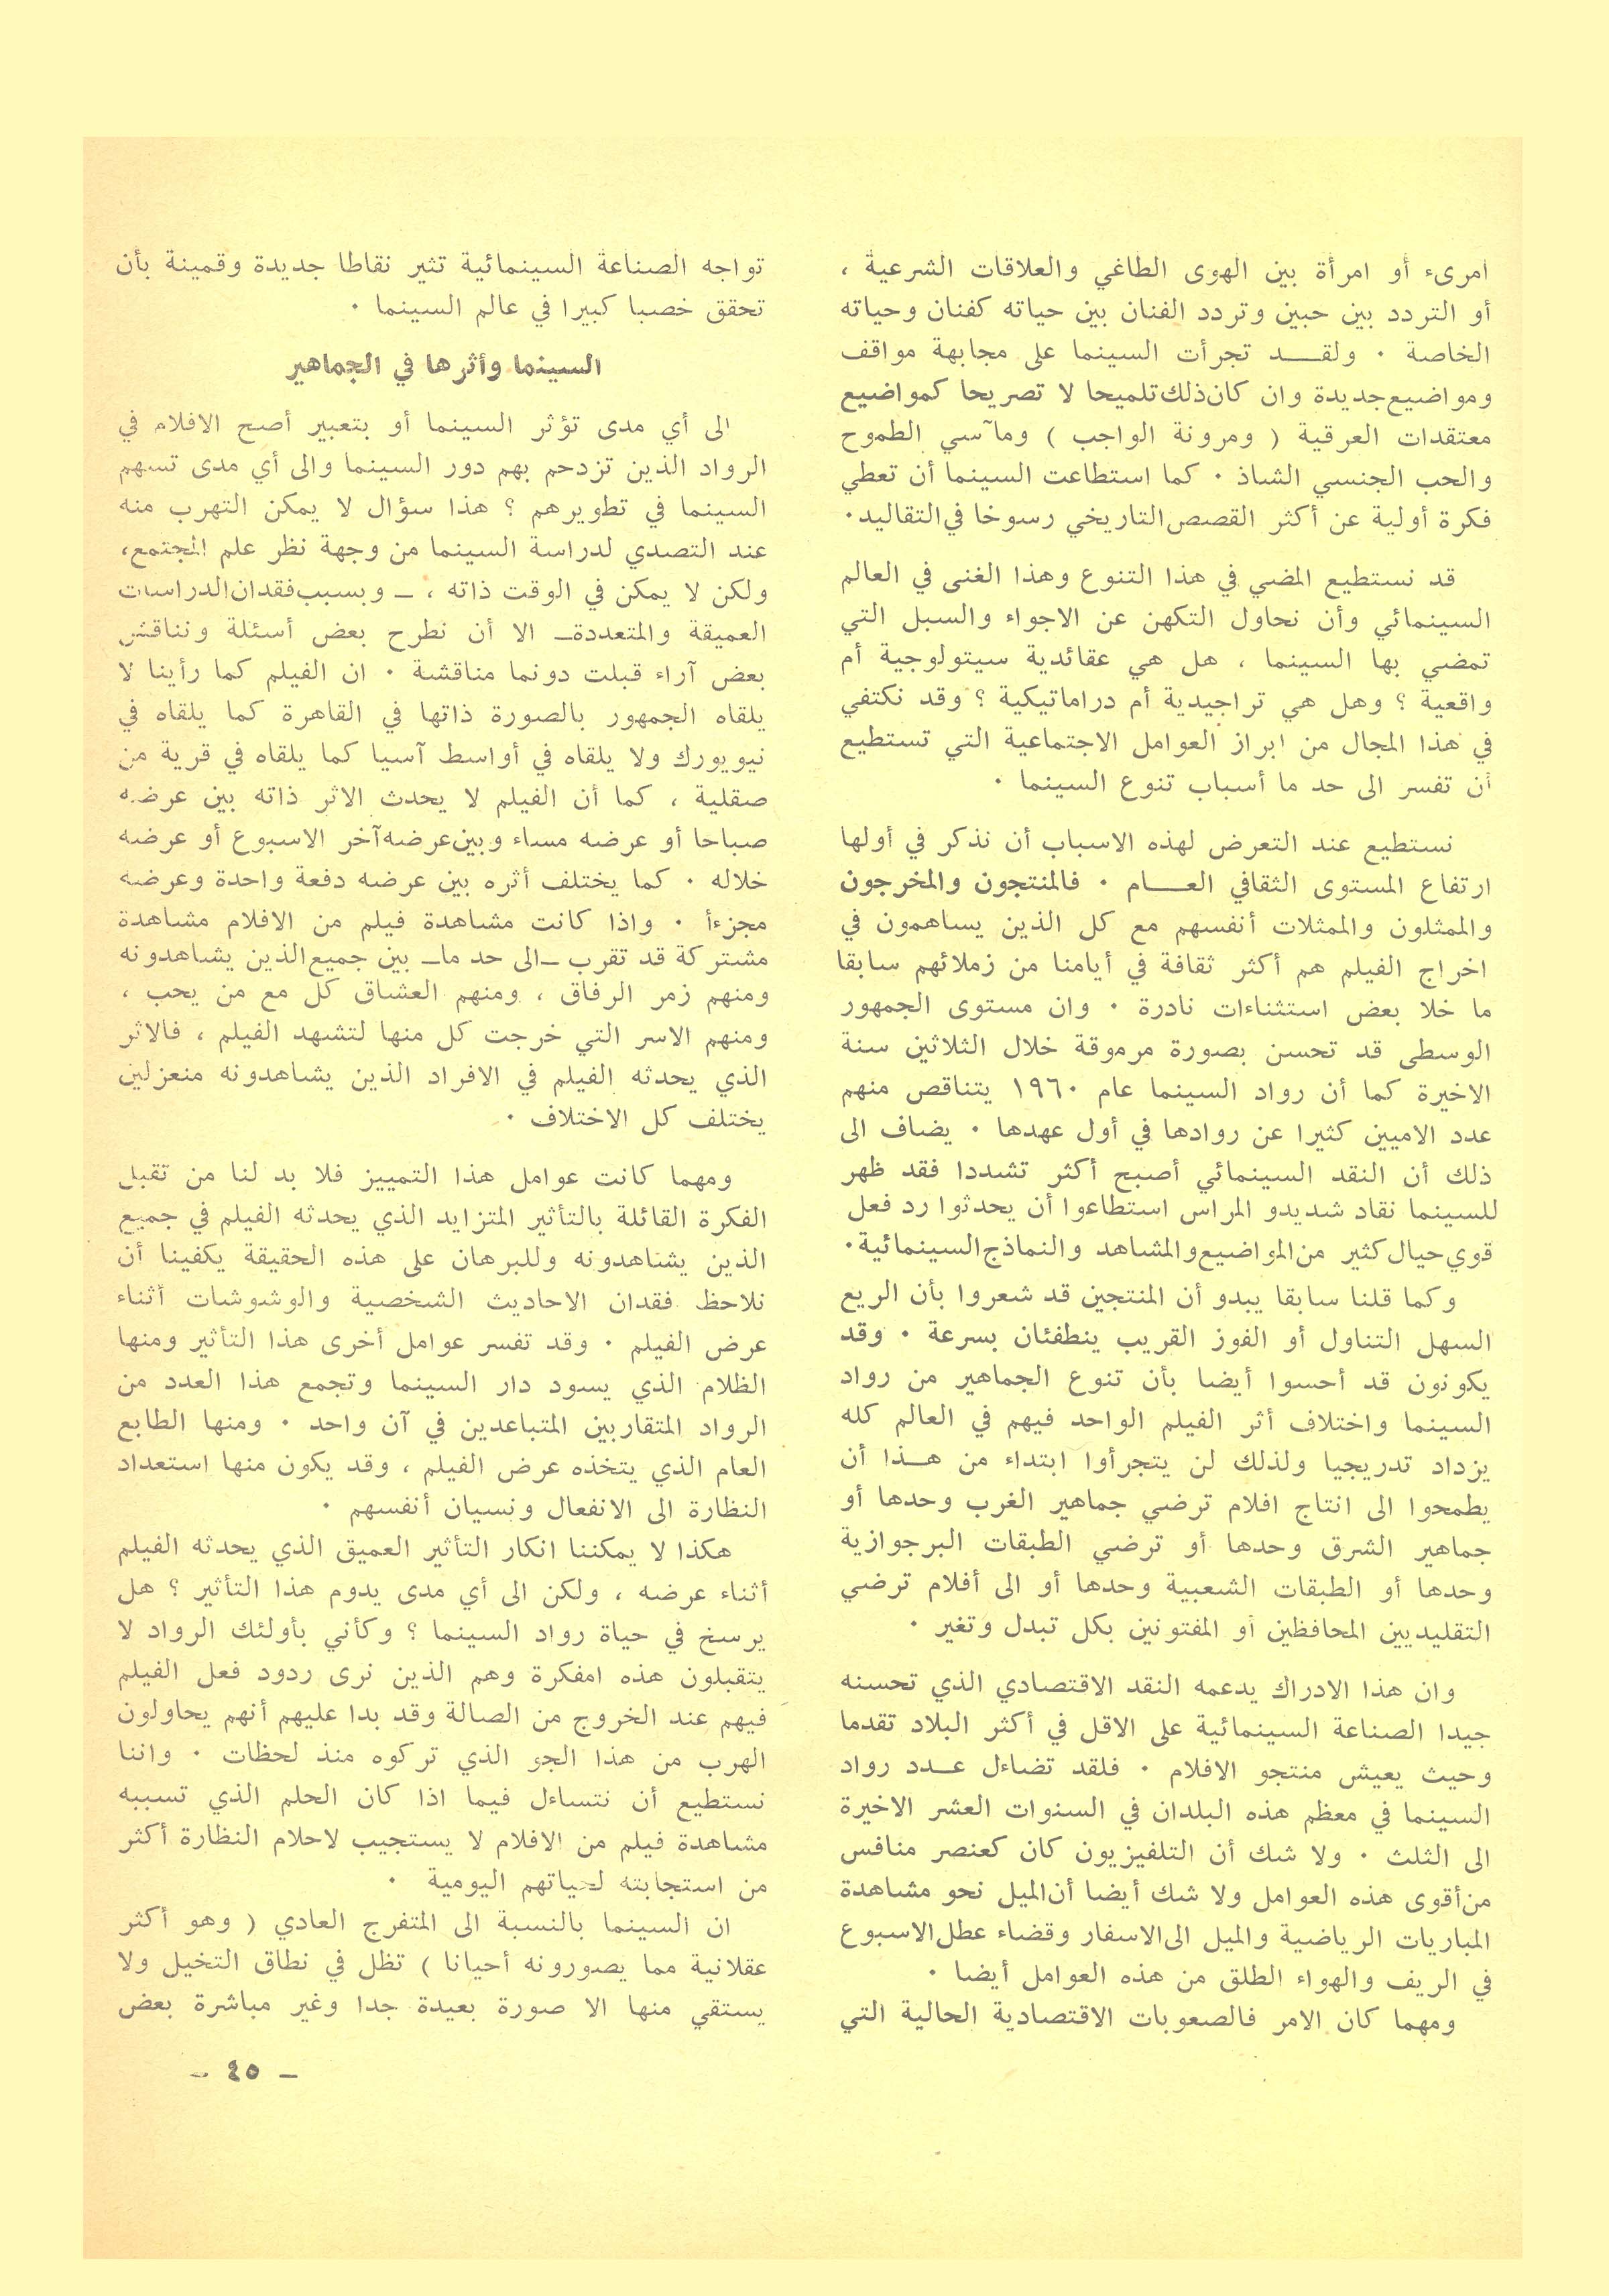 امرىء أو امرأة بين الهوى الطاغي والعلاقات الشرعية ،
أو التردد بين حبين وتردد الفنان بين حياته كفنان وحياته
الخاصة . ولقــد تجرأت السينما على مجابهة مواقف
ومواضيع جديدة وان كان ذلك تلميحا لا تصريحا كمواضيع
معتقدات العرقية ( ومرونة الواجب ) ومآسي الطموح
والحب الجنسي الشاذ . كما استطاعت السينما أن تعطي
فكرة أولية عن أكثر القصص التاريخي رسوخا في التقاليد .
قد نستطيع المضي في هذا التنوع وهذا الغنى في العالم
السينمائي وأن نحاول التكهن عن الاجواء والسبل التي
تمضي بها السينما ، هل هي عقائدية سيتولوجية أم
واقعية ؟ وهل هي تراجيدية أم دراماتيكية ؟ وقد نكتفي
في هذا المجال من ابراز العوامل الاجتماعية التي تستطيع
أن تفسر الى حد ما أسباب تنوع السينما .
نستطيع عند التعرض لهذه الاسباب أن نذكر في أولها
ارتفاع المستوى الثقافي العــام . فالمنتجون والمخرجون
والممثلون والممثلات أنفسهم مع كل الذين يساهمون في
اخراج الفيلم هم أكثر ثقافة في أيامنا من زملائهم سابقا
ما خلا بعض استثناءات نادرة . وان مستوى الجمهور
الوسطى قد تحسن بصورة مرموقة خلال الثلاثين سنة
الاخيرة كما أن رواد السينما عام ١٩٦٠ يتناقص منهم
عدد الاميين كثيرا عن روادها في أول عهدها . يضاف الى
ذلك أن النقد السينمائي أصبح أكثر تشددا فقد ظهر
للسينما نقاد شديدو المراس استطاعوا أن يحدثوا رد فعل
قوي حيال كثير من المواضيع والمشاهد والنماذج السينمائية .
وكما قلنا سابقا يبدو أن المنتجين قد شعروا بأن الريع
السهل التناول أو الفوز القريب ينطفئان بسرعة . وقد
يكونون قد أحسوا أيضا بأن تنوع الجماهير من رواد
السينما واختلاف أثر الفيلم الواحد فيهم في العالم كله
يزداد تدريجيا ولذلك لن يتجرأوا ابتداء من هــذا أن
يطمحوا الى انتاج افلام ترضي جماهير الغرب وحدها أو
جماهير الشرق وحدها أو ترضي الطبقات البرجوازية
وحدها أو الطبقات الشعبية وحدها أو الى أفلام ترضي
التقليديين المحافظين أو المفتونين بكل تبدل وتغير .
وان هذا الادراك يدعمه النقد الاقتصادي الذي تحسنه
جيدا الصناعة السينمائية على الاقل في أكثر البلاد تقدما
وحيث يعيش منتجو الافلام . فلقد تضاءل عــدد رواد
السينما في معظم هذه البلدان في السنوات العشر الاخيرة
الى الثلث . ولا شك أن التلفيزيون كان كعنصر منافس
من أقوى هذه العوامل ولا شك أيضا أن الميل نحو مشاهدة
المباريات الرياضية والميل الى الاسفار وقضاء عطل الاسبوع
في الريف والهواء الطلق من هذه العوامل أيضا .
ومهما كان الامر فالصعوبات الاقتصادية الحالية التي
تواجه الصناعة السينمائية تثير نقاطا جديدة وقمينة بأن
تحقق خصبا كبيرا في عالم السينما .
السينما وأثرها في الجماهير
الى أي مدى تؤثر السينما أو بتعبير أصح الافلام في
الرواد الذين تزدحم بهم دور السينما والى أي مدى تسهم
السينما في تطويرهم ؟ هذا سؤال لا يمكن التهرب منه
عند التصدي لدراسة السينما من وجهة نظر علم المجتمع ،
ولكن لا يمكن في الوقت ذاته ، ــ وبسبب فقدان الدراسات
العميقة والمتعددة ــ الا أن نطرح بعض أسئلة ونناقش
بعض آراء قبلت دونما مناقشة . ان الفيلم كما رأينا لا
يلقاه الجمهور بالصورة ذاتها في القاهرة كما يلقاه في
نيويورك ولا يلقاه في أواسط آسيا كما يلقاه في قرية من
صقلية ، كما أن الفيلم لا يحدث الاثر ذاته بين عرضه
صباحا أو عرضه مساء وبين عرضه آخر الاسبوع أو عرضه
خلاله . كما يختلف أثره بين عرضه دفعة واحدة وعرضه
مجزءأ . واذا كانت مشاهدة فيلم من الافلام مشاهدة
مشتركة قد تقرب ــ الى حد ما ــ بين جميع الذين يشاهدونه
ومنهم زمر الرفاق ، ومنهم العشاق كل مع من يحب ،
ومنهم الاسر التي خرجت كل منها لتشهد الفيلم ، فالاثر
الذي يحدثه الفيلم في الافراد الذين يشاهدونه منعزلين
يختلف كل الاختلاف .
ومهما كانت عوامل هذا التمييز فلا بد لنا من تقبل
الفكرة القائلة بالتأثير المتزايد الذي يحدثه الفيلم في جميع
الذين يشاهدونه وللبرهان على هذه الحقيقة يكفينا أن
نلاحظ فقدان الاحاديث الشخصية والوشوشات أثناء
عرض الفيلم . وقد تفسر عوامل أخرى هذا التأثير ومنها
الظلام الذي يسود دار السينما وتجمع هذا العدد من
الرواد المتقاربين المتباعدين في آن واحد . ومنها الطابع
العام الذي يتخذه عرض الفيلم ، وقد يكون منها استعداد
النظارة الى الانفعال ونسيان أنفسهم .
هكذا لا يمكننا انكار التأثير العميق الذي يحدثه الفيلم
أثناء عرضه ، ولكن الى أي مدى يدوم هذا التأثير ؟ هل
يرسخ في حياة رواد السينما ؟ وكأني بأولئك الرواد لا
يتقبلون هذه امفكرة وهم الذين نرى ردود فعل الفيلم
فيهم عند الخروج من الصالة وقد بدا عليهم أنهم يحاولون
الهرب من هذا الجو الذي تركوه منذ لحظات . واننا
نستطيع أن نتساءل فيما اذا كان الحلم الذي تسببه
مشاهدة فيلم من الافلام لا يستجيب لاحلام النظارة أكثر
من استجابته لحياتهم اليومية .
ان السينما بالنسبة الى المتفرج العادي ( وهو أكثر
عقلانية مما يصورونه أحيانا ) تظل في نطاق التخيل ولا
يستقي منها الا صورة بعيدة جدا وغير مباشرة بعض
ــ ٤٥ ــ